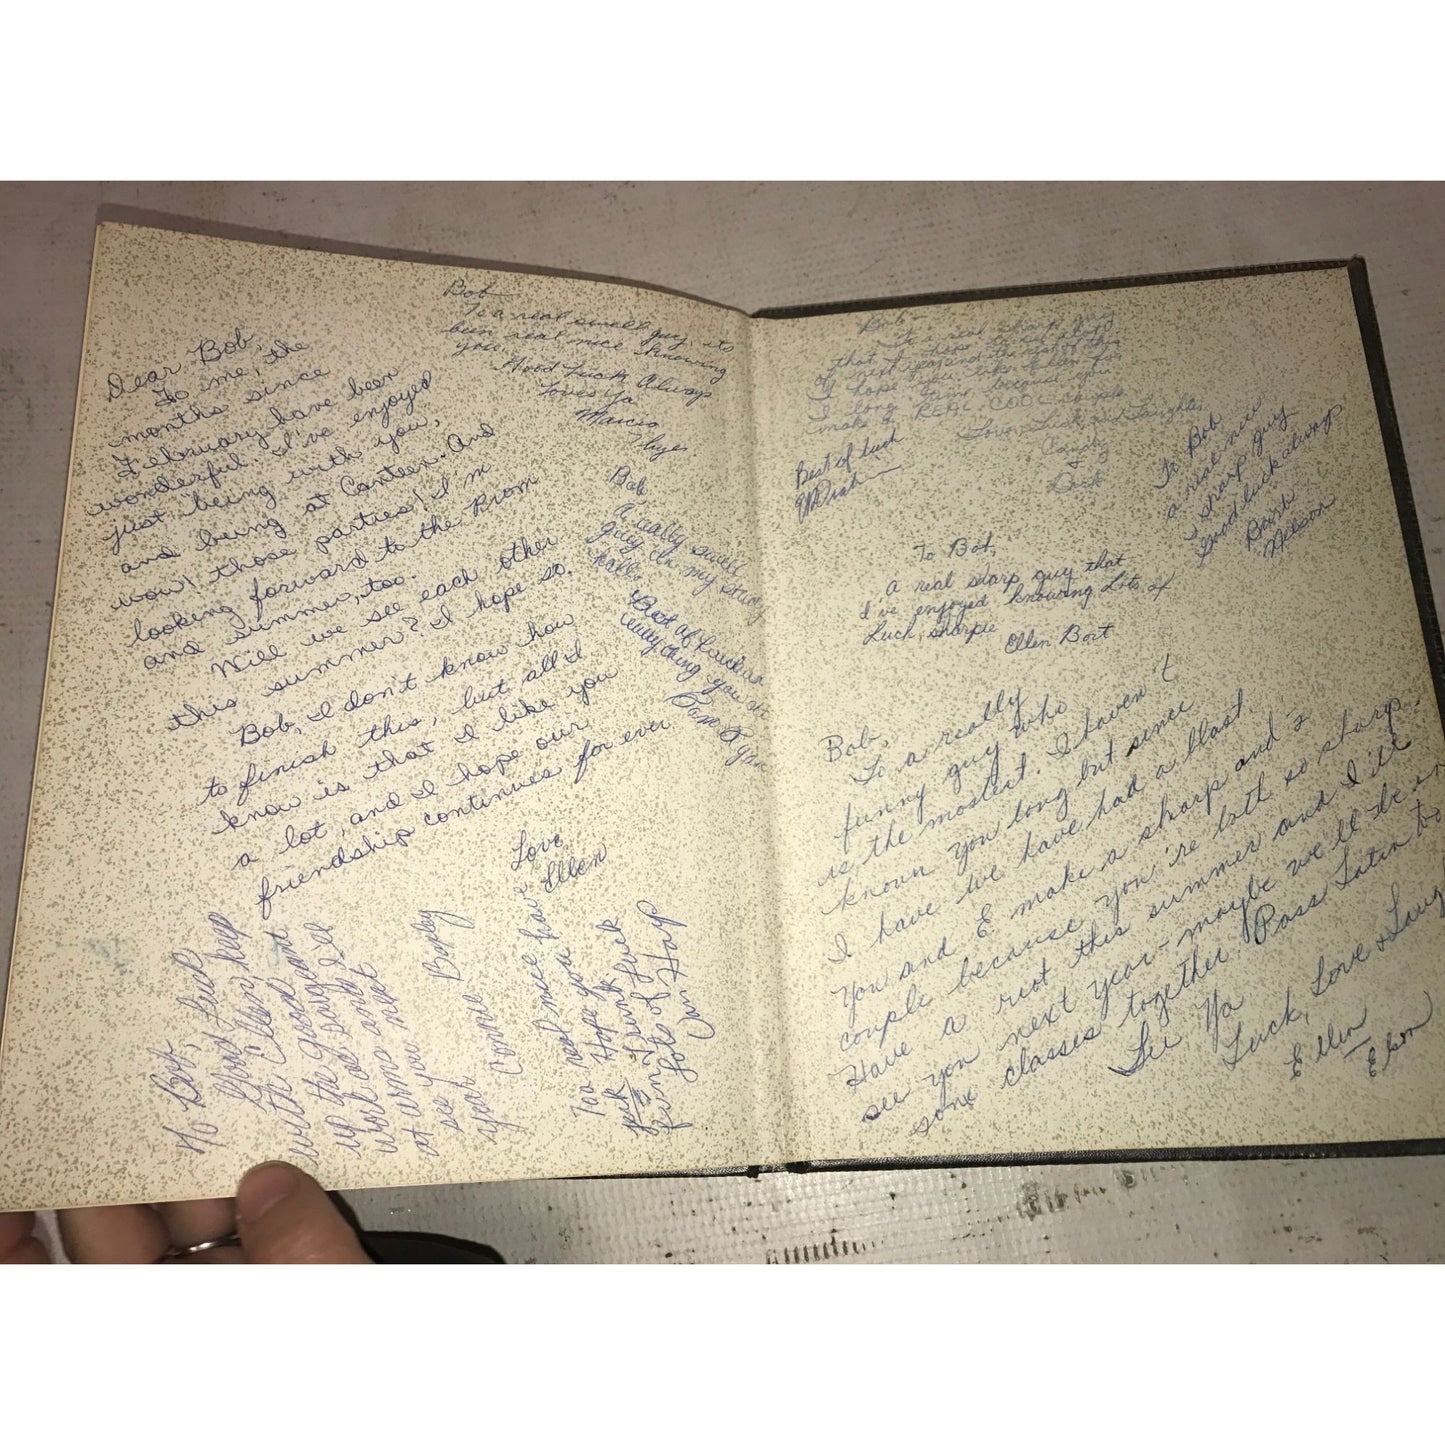 Dear Bob,
To me, the
months since
February have been
wonderful. I've enjoyed
just being with you,
and being at Canteen. And
wow! those parties! I'm
looking forward to the Prom
and summer, too.
Will we see each other
this summer? I hope so.
Bob, I don't know how
to finish this, but all I
know is that I like you
a lot, and I hope our
friendship continues for ever
Love,
Ellen
Bob
To a real swell guy, its
been real nice knowing
you.
Good Luck Always
Loves ya
Marcia
Bob
A really swell
guy in my study
hall.
Best of Luck in
everything you do
Pam
To Bob,
Good Luck
with Ellen, keep
up the good
work and I'll
see you next
year
Connie
To a real nice
Hope you
Lots of Luck
Bob
To a real sharp guy
that
I hope
make a REAL COOL couple
Love, Luck and Laughter,
Best of luck
To Bob
a real nice
& sharp guy
Good luck always
Barb
Nelson
To Bob,
A real sharp guy that
I've enjoyed knowing Lots of
Luck, sharpie
Ellen Bort
Bob,
To a really
funny guy who
is the mostest. I haven't
known you long but since
I have we have had a blast
You and E make a sharp
couple because you're both so sharp.
Have a riot this summer and I'll
see you next year - maybe we'll be in
some classes together. Pass Latin too
See Ya
Luck, Love & Laug
Ellen